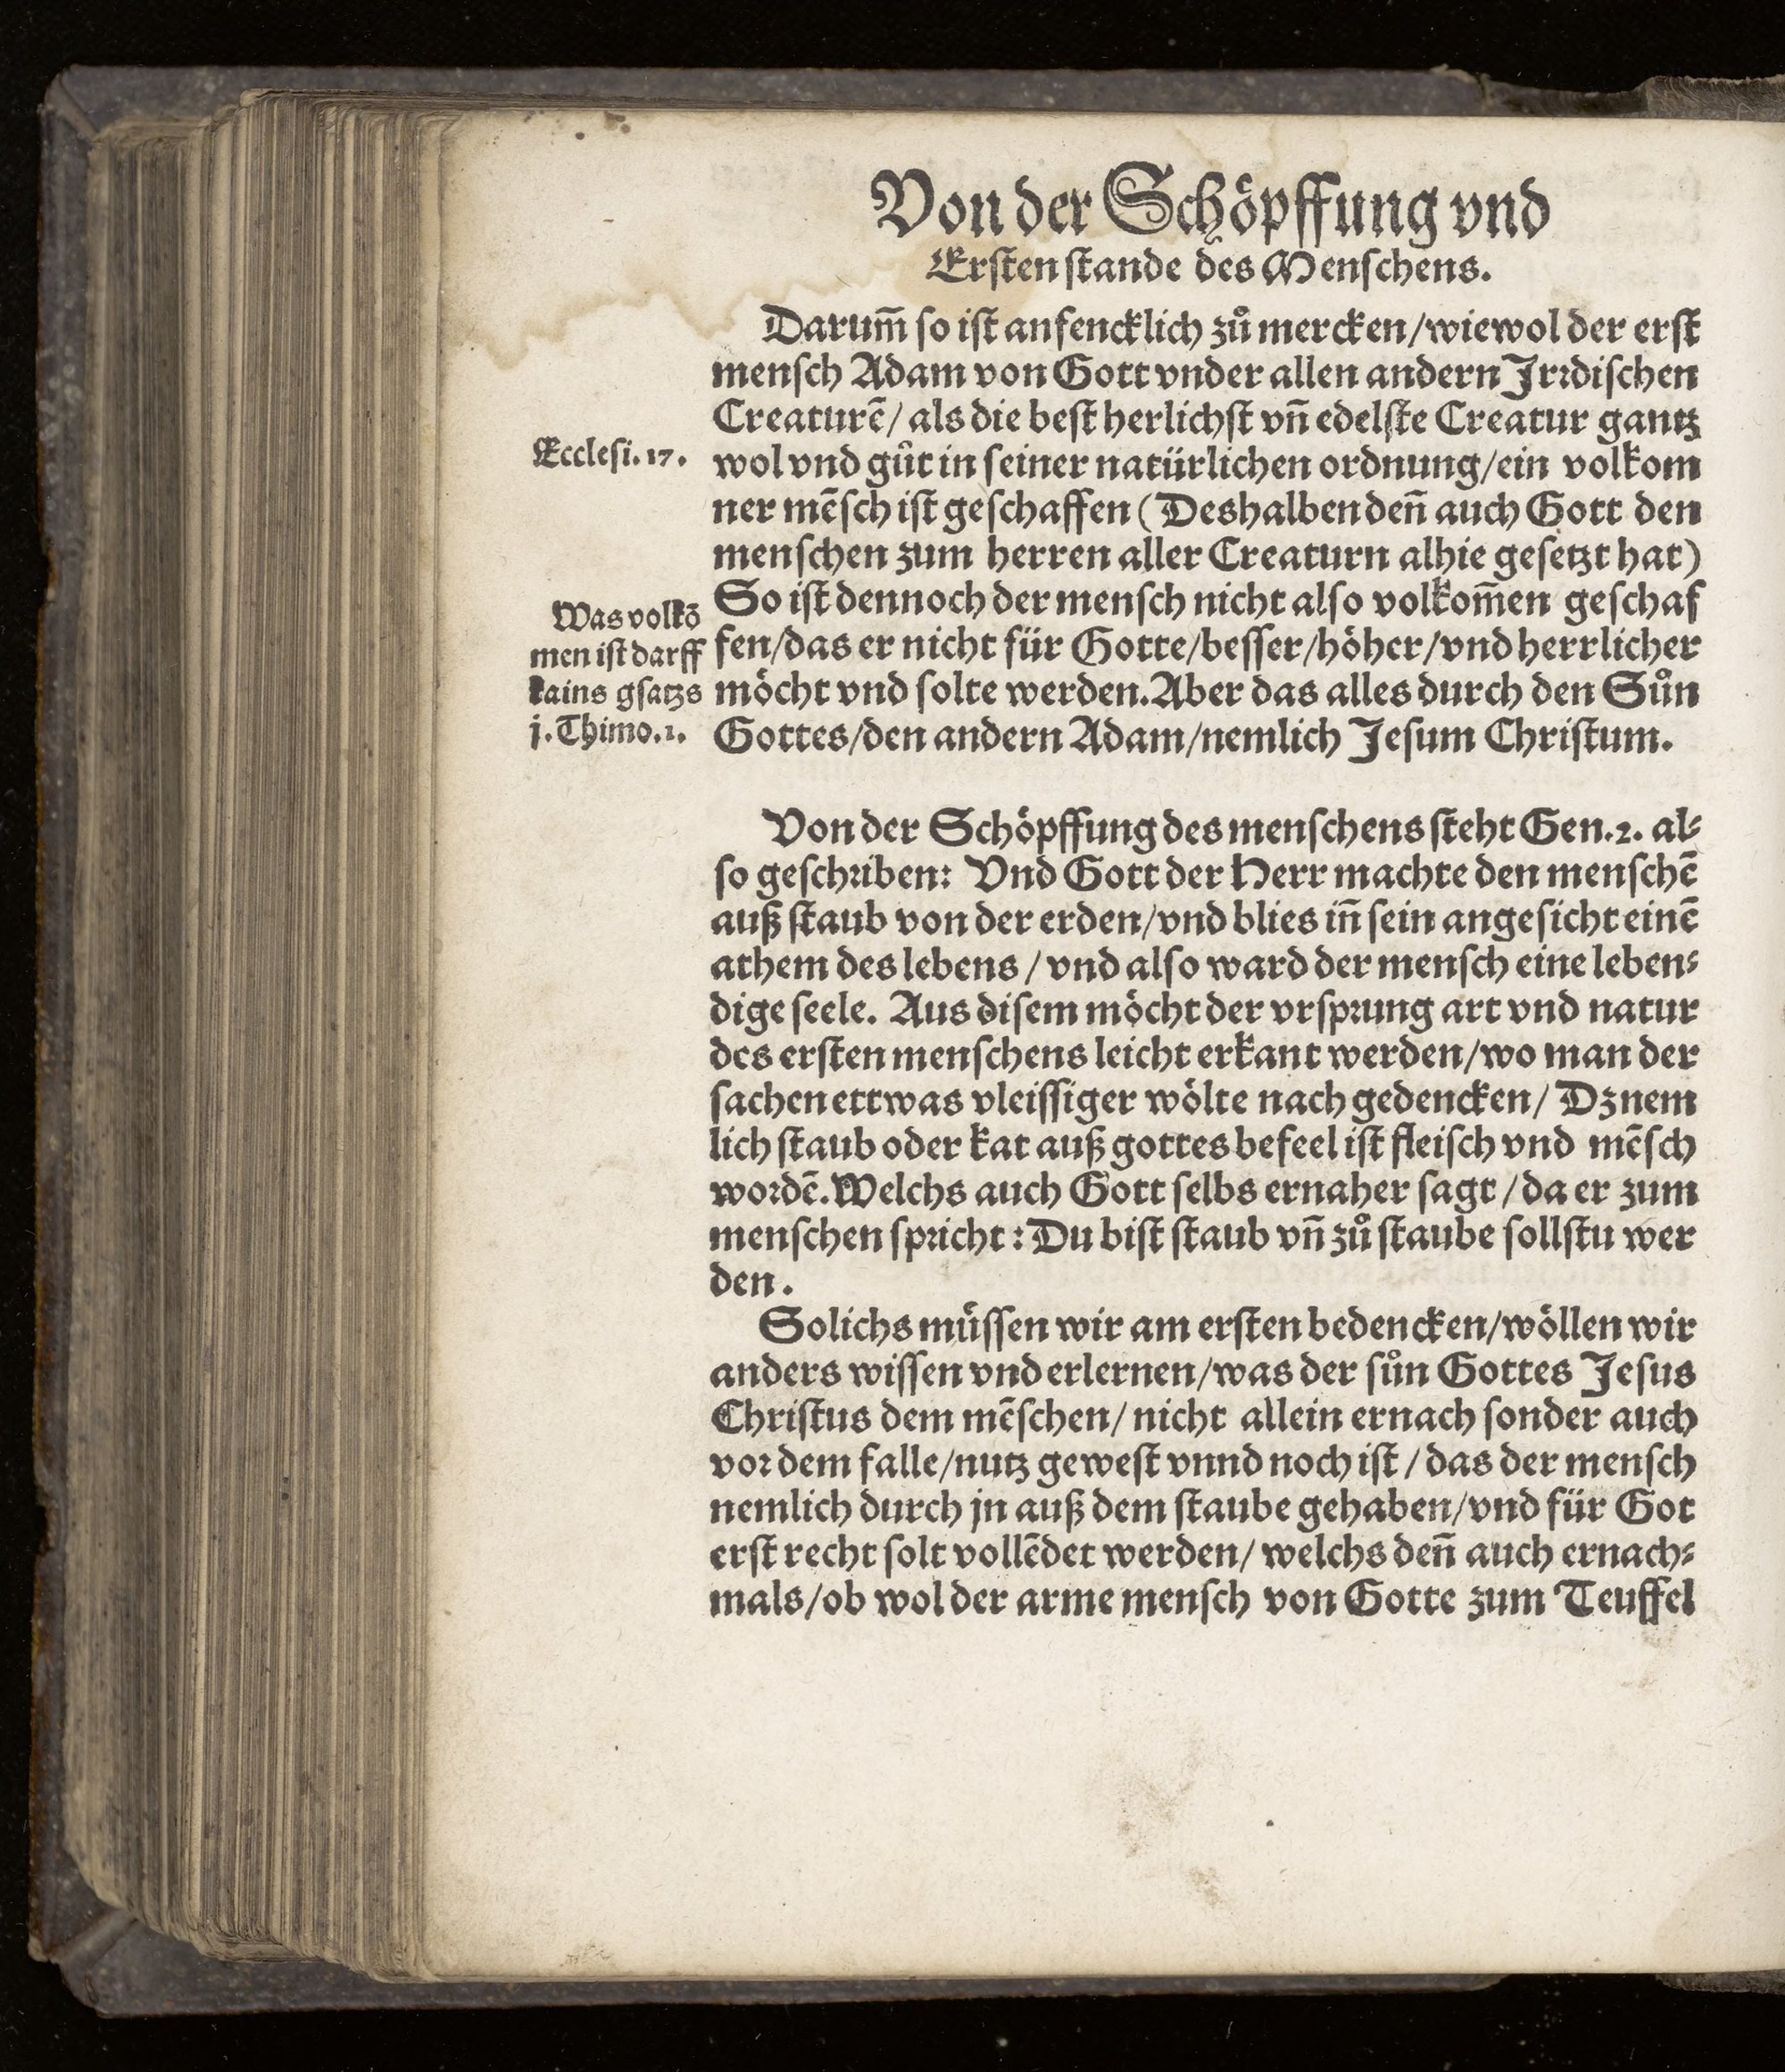 Von der Schoͤpffung vnd
Erſten ſtande des Menſchens.
Darum̄ ſo iſt anfencklich zů mercken/wiewol der erſt
menſch Adam von Gott vnder allen andern Jrꝛdiſchen
Creaturē/ als die beſt herlichſt vn̄ edelſte Creatur gantz
Eccleſi. 17.
wol vnd gůt in ſeiner natürlichen ordnung/ein volkom
ner mēſch iſt geſchaffen (Deshalben den̄ auch Gott den
menſchen zum herren aller Creaturn alhie geſetzt hat)
So iſt dennoch der menſch nicht alſo volkom̄en geſchaf
fen/das er nicht für Gotte/beſſer/hoͤher/vnd herrlicher
moͤcht vnd ſolte werden. Aber das alles durch den Sůn
Gottes/den andern Adam/nemlich Jeſum Chriſtum.
Was volkō
men iſt darff
kains gſatzs
j. Thimo. 1.
Von der Schoͤpffung des menſchens ſteht Gen. 2. al⸗
ſo geſchꝛiben: Vnd Gott der Herr machte den menſchē
auß ſtaub von der erden/vnd blies in̄ ſein angeſicht einē
athem des lebens / vnd alſo ward der menſch eine leben⸗
dige ſeele. Aus diſem moͤcht der vrſpꝛung art vnd natur
des erſten menſchens leicht erkant werden/wo man der
ſachen ettwas vleiſſiger woͤlte nach gedencken/ Dꝫ nem
lich ſtaub oder kat auß gottes befeel iſt fleiſch vnd mēſch
woꝛdē. Welchs auch Gott ſelbs ernaher ſagt / da er zum
menſchen ſpꝛicht: Du biſt ſtaub vn̄ zů ſtaube ſollſtu wer
den.
Solichs muͤſſen wir am erſten bedencken/woͤllen wir
anders wiſſen vnd erlernen/was der ſůn Gottes Jeſus
Chriſtus dem mēſchen/ nicht allein ernach ſonder auch
voꝛ dem falle/nutz geweſt vnnd noch iſt / das der menſch
nemlich durch jn auß dem ſtaube gehaben/vnd für Got
erſt recht ſolt vollēdet werden/ welchs den̄ auch ernach⸗
mals/ob wol der arme menſch von Gotte zum Teuffel